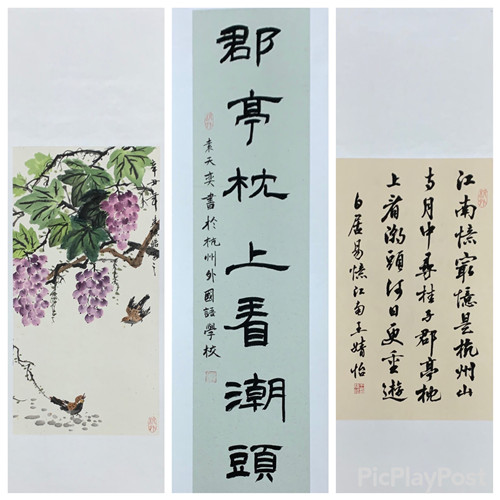 辛丑年
郡亭枕上看潮頭
袁天奕書於杭州外國語學校
江南憶最憶是杭州山
寺月中尋桂子郡亭枕
上看潮頭何日更重遊
白居易憶江南王婧怡
PicPlayPost